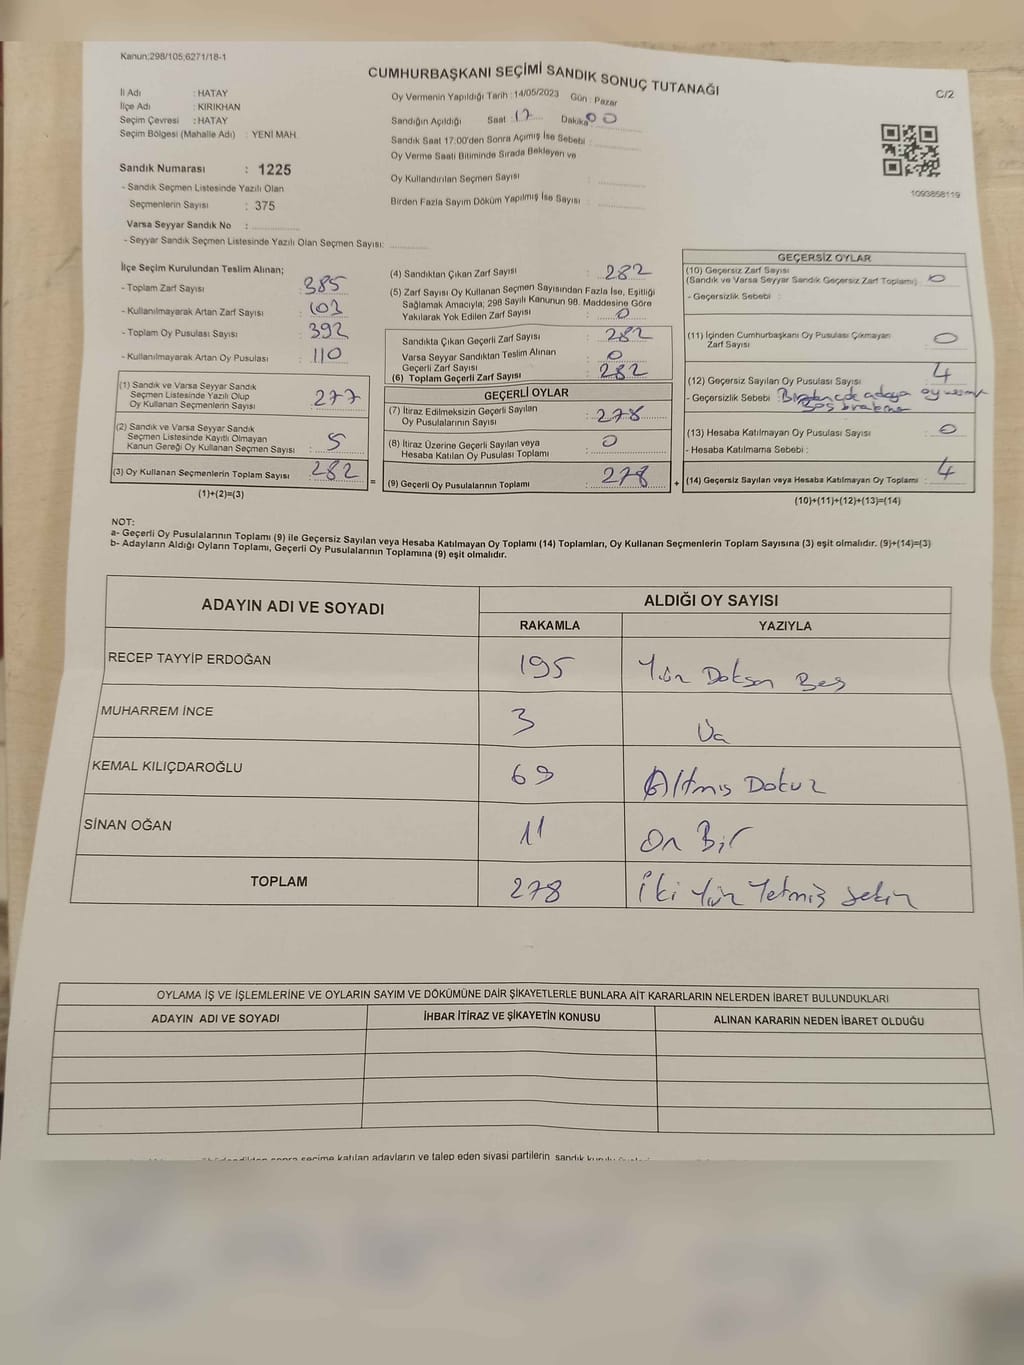 Kanun;298/105,6271/18-1
CUMHURBAŞKANI SEÇİMİ SANDIK SONUÇ TUTANAĞI
C/2
İl Adı : HATAY
İlçe Adı : KIRIKHAN
Seçim Çevresi : HATAY
Seçim Bölgesi (Mahalle Adı) : YENİ MAH.
Oy Vermenin Yapıldığı Tarih :14/05/2023 Gün : Pazar
Sandığın Açıldığı Saat 17 Dakika 00
Sandık Saat 17:00'den Sonra Açımış İse Sebebi :
Oy Verme Saati Bitiminde Sırada Bekleyen ve
Oy Kullandırılan Seçmen Sayısı :
Birden Fazla Sayım Döküm Yapılmış İse Sayısı :
1093858119
Sandık Numarası : 1225
- Sandık Seçmen Listesinde Yazılı Olan
Seçmenlerin Sayısı : 375
Varsa Seyyar Sandık No :
- Seyyar Sandık Seçmen Listesinde Yazılı Olan Seçmen Sayısı:
İlçe Seçim Kurulundan Teslim Alınan;
- Toplam Zarf Sayısı : 385
- Kullanılmayarak Artan Zarf Sayısı : 103
- Toplam Oy Pusulası Sayısı : 392
- Kullanılmayarak Artan Oy Pusulası : 110
(1) Sandık ve Varsa Seyyar Sandık
Seçmen Listesinde Yazılı Olup
Oy Kullanan Seçmenlerin Sayısı : 277
(2) Sandık ve Varsa Seyyar Sandık
Seçmen Listesinde Kayıtlı Olmayan
Kanun Gereği Oy Kullanan Seçmen Sayısı : 5
(3) Oy Kullanan Seçmenlerin Toplam Sayısı : 282
(1)+(2)=(3)
=
(4) Sandıktan Çıkan Zarf Sayısı : 282
(5) Zarf Sayısı Oy Kullanan Seçmen Sayısından Fazla İse, Eşitliği
Sağlamak Amacıyla; 298 Sayılı Kanunun 98. Maddesine Göre
Yakılarak Yok Edilen Zarf Sayısı : 0
Sandıkta Çıkan Geçerli Zarf Sayısı : 282
Varsa Seyyar Sandıktan Teslim Alınan
Geçerli Zarf Sayısı : 0
(6) Toplam Geçerli Zarf Sayısı : 282
GEÇERLİ OYLAR
(7) İtiraz Edilmeksizin Geçerli Sayılan
Oy Pusulalarının Sayısı : 278
(8) İtiraz Üzerine Geçerli Sayılan veya
Hesaba Katılan Oy Pusulası Toplamı : 0
(9) Geçerli Oy Pusulalarının Toplamı : 278
+
GEÇERSİZ OYLAR
(10) Geçersiz Zarf Sayısı
(Sandık ve Varsa Seyyar Sandık Geçersiz Zarf Toplamı) : 0
- Geçersizlik Sebebi :
(11) İçinden Cumhurbaşkanı Oy Pusulası Çıkmayan
Zarf Sayısı : 0
(12) Geçersiz Sayılan Oy Pusulası Sayısı : 4
- Geçersizlik Sebebi : adaya oy
(13) Hesaba Katılmayan Oy Pusulası Sayısı : 0
- Hesaba Katılmama Sebebi :
(14) Geçersiz Sayılan veya Hesaba Katılmayan Oy Toplamı : 4
(10)+(11)+(12)+(13)=(14)
NOT:
a- Geçerli Oy Pusulalarının Toplamı (9) ile Geçersiz Sayılan veya Hesaba Katılmayan Oy Toplamı (14) Toplamları, Oy Kullanan Seçmenlerin Toplam Sayısına (3) eşit olmalıdır. (9)+(14)=(3)
b- Adayların Aldığı Oyların Toplamı, Geçerli Oy Pusulalarının Toplamına (9) eşit olmalıdır.
ADAYIN ADI VE SOYADI
ALDIĞI OY SAYISI
RAKAMLA YAZIYLA
RECEP TAYYİP ERDOĞAN 195 Yüz Doksan Beş
MUHARREM İNCE 3 Üç
KEMAL KILIÇDAROĞLU 69 Altmış Dokuz
SİNAN OĞAN 11 On Bir
TOPLAM 278 İki Yüz Yetmiş Sekiz
OYLAMA İŞ VE İŞLEMLERİNE VE OYLARIN SAYIM VE DÖKÜMÜNE DAİR ŞİKAYETLERLE BUNLARA AİT KARARLARIN NELERDEN İBARET BULUNDUKLARI
ADAYIN ADI VE SOYADI İHBAR İTİRAZ VE ŞİKAYETİN KONUSU ALINAN KARARIN NEDEN İBARET OLDUĞU
sonra seçime katılan adayların ve talep eden siyasi partilerin sandık kurulu